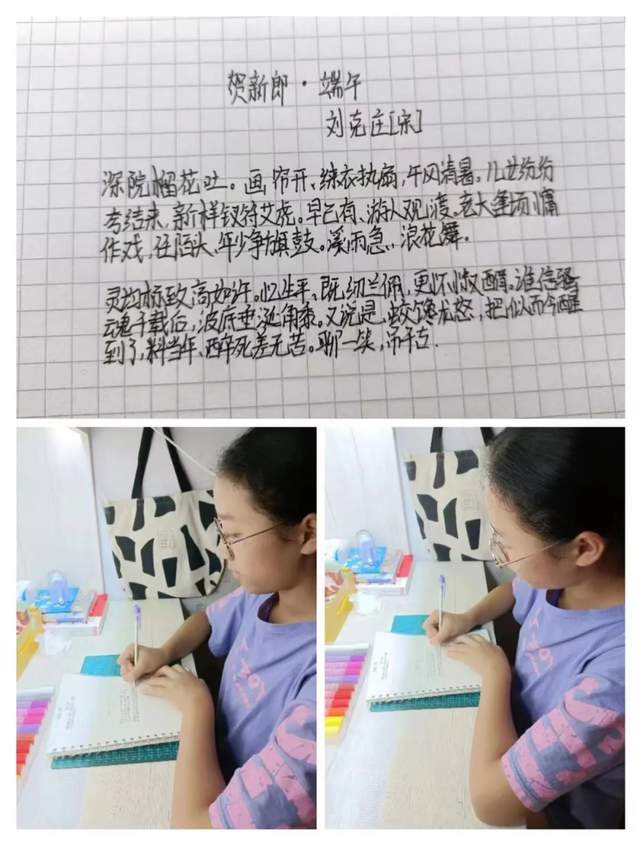 贺新郎·端午
刘克庄[宋]
深院榴花吐。画帘开、綀衣执扇，午风清暑。儿女纷纷
夸结束、新样钗符艾虎。早已有、游人观渡。老大逢场慵
作戏，任陌头、年少争旗鼓。溪雨急，浪花舞。
灵均标致高如许。忆生平、既纫兰佩，更怀椒醑。谁信骚
魂千载后，波底垂涎角黍。又说是、蛟馋龙怒，把似而今醒
到了，料当年、醉死差无苦。聊一笑，吊千古.